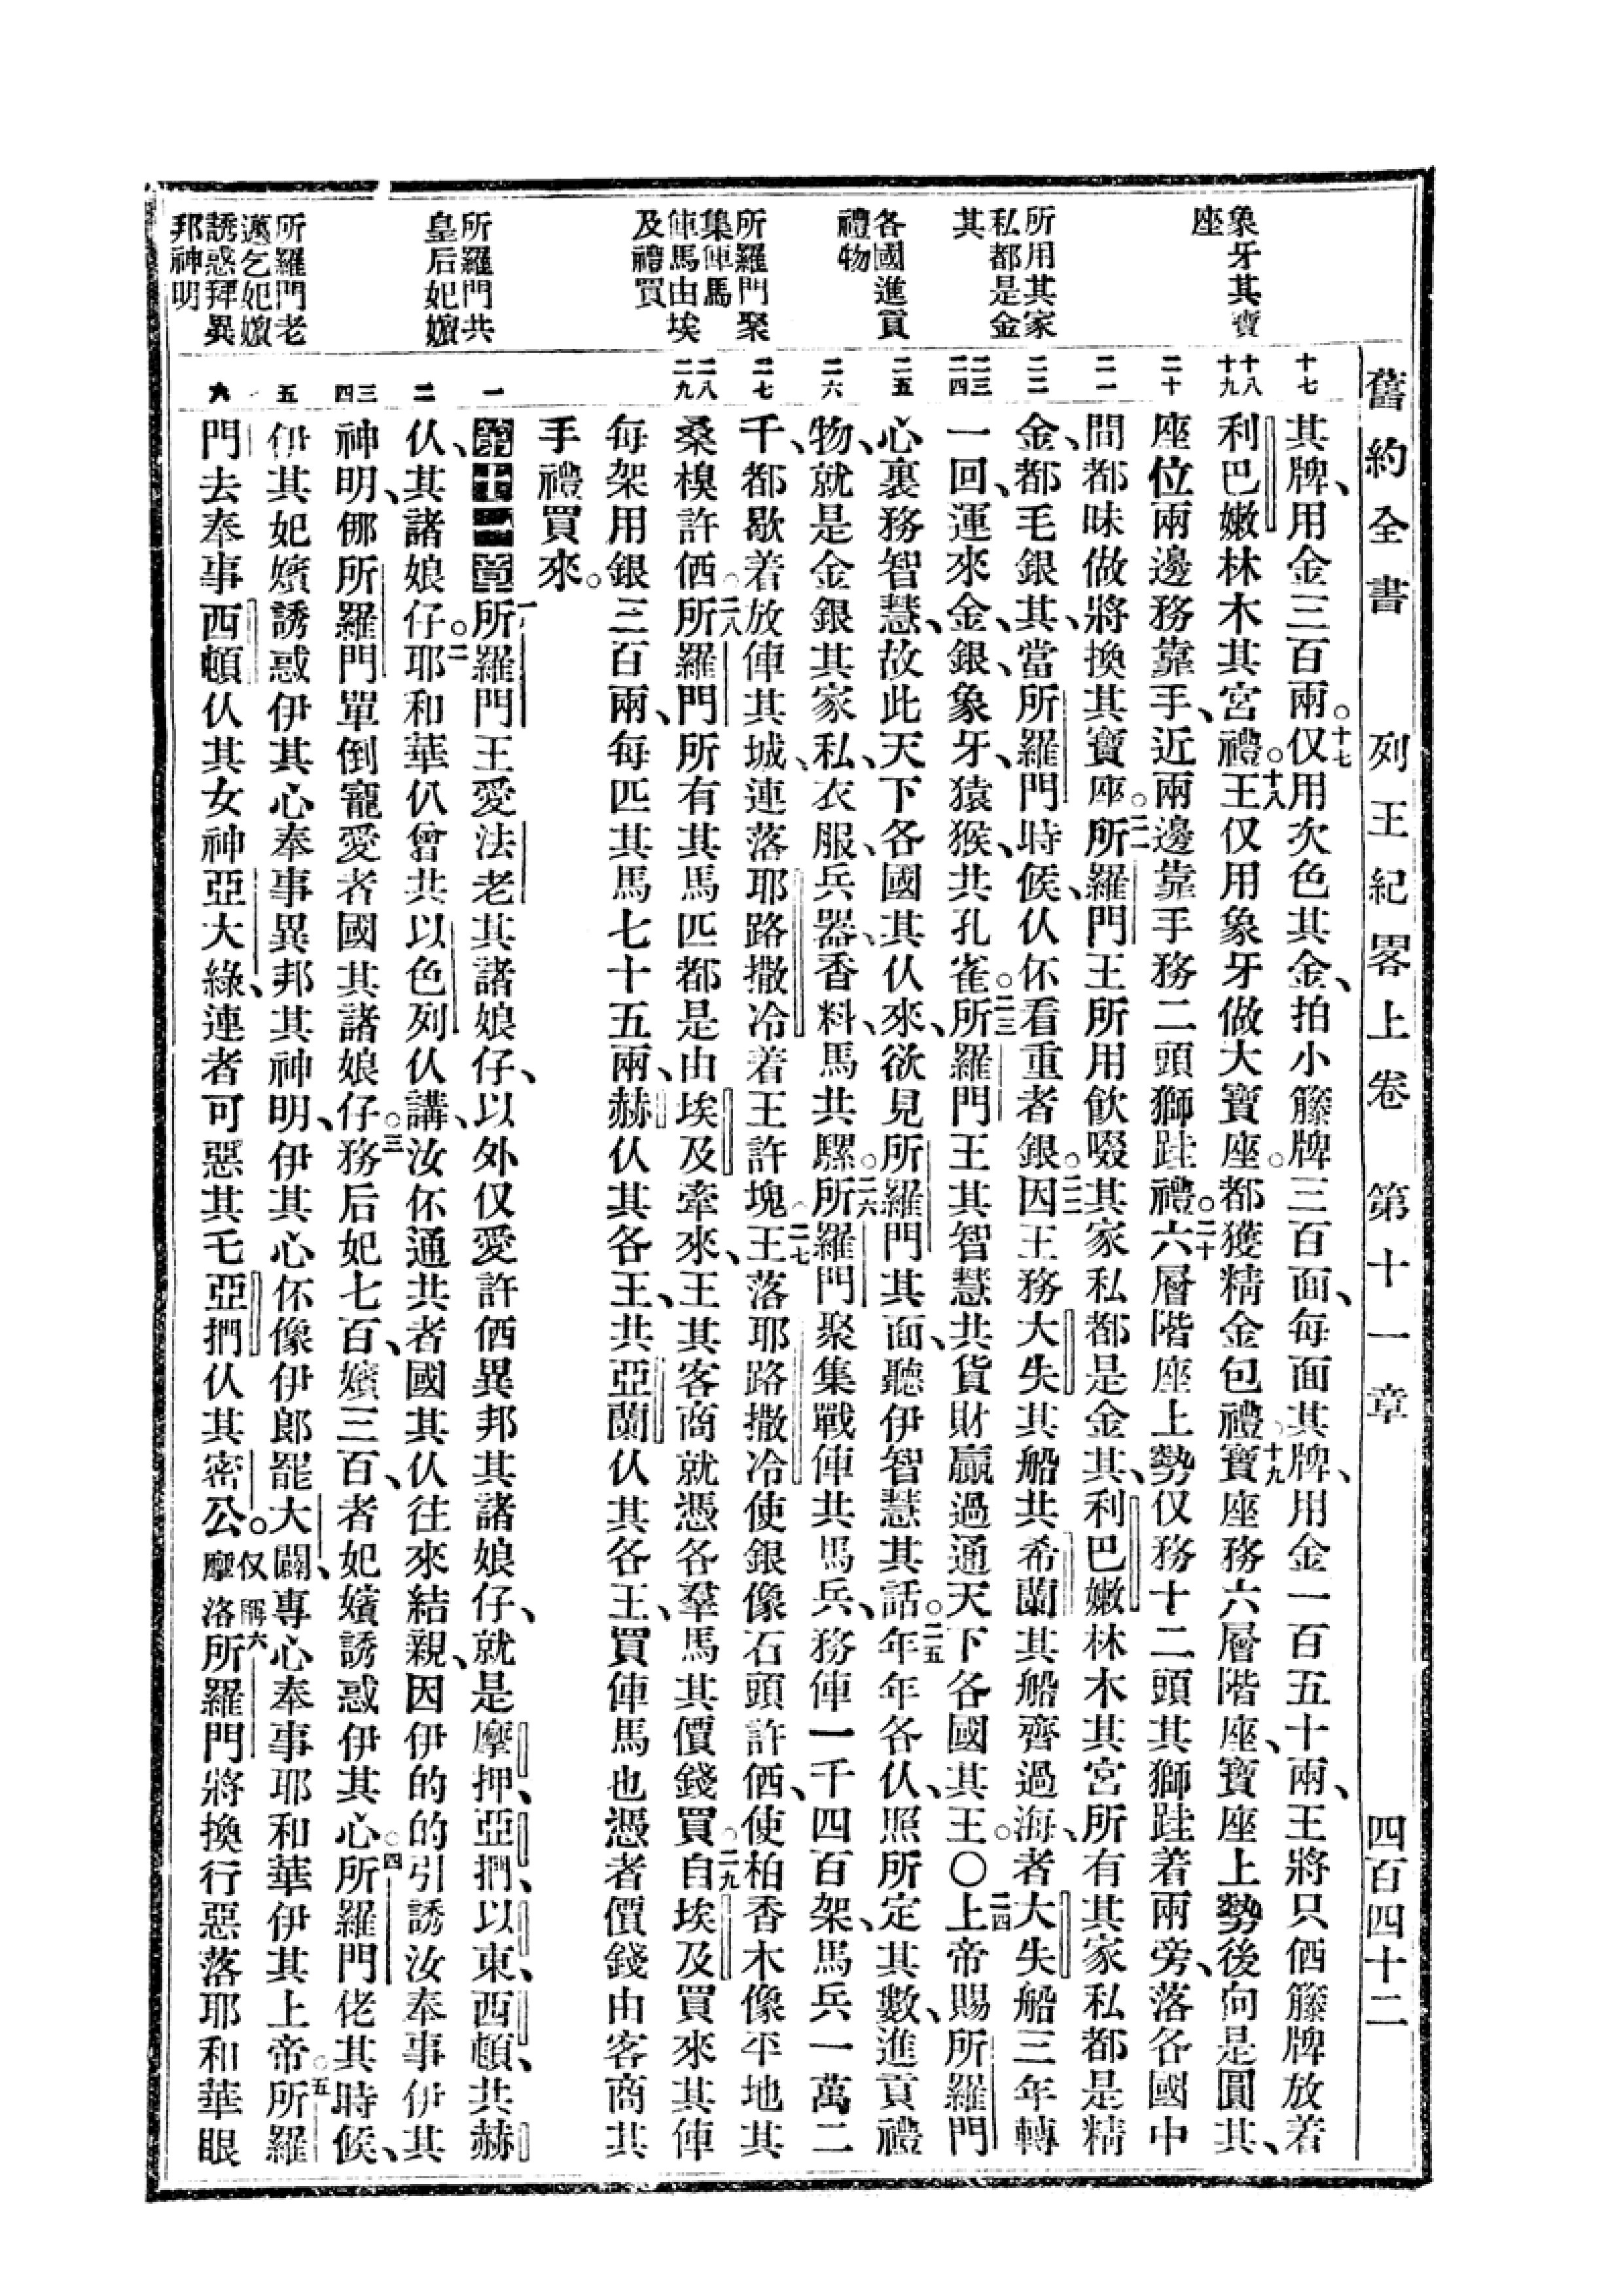 舊約全書 列王紀畧上卷 第十一章 四百四十二
象牙其寶
座
所用其家
私都是金
其
各國進貢
禮物
所羅門聚
集俥馬
俥馬由埃
及禮買
所羅門共
皇后妃嬪
所羅門老
邁乞妃嬪
誘惑拜異
邦神明
十七
十八
十九
二十
二一
二二
二三
二四
二五
二六
二七
二八
二九
一
二
三
四
五
六
其牌、用金三百兩。十七仅用次色其金、拍小籐牌三百面、每面其牌、用金一百五十兩、王將只価籐牌放着
利巴嫩林木其宮禮。十八王仅用象牙做大寶座。都獲精金包禮。十九寶座務六層階座、寶座上勢後向是圓其、
座位兩邊務靠手、近兩邊靠手務二頭獅跬禮。二十六層階座上勢仅務十二頭其獅跬着兩旁、落各國中
間都昧做將換其寶座。二一所羅門王所用飮啜其家私都是金其、利巴嫩林木其宮所有其家私都是精
金、都毛銀其、當所羅門時候、伩伓看重者銀。二二因王務大失其船共希蘭其船齊過海、者大失船三年轉
一回、運來金、銀、象牙、猿猴、共孔雀。二三所羅門王其智慧共貨財贏過通天下各國其王。〇二四上帝賜所羅門
心裏務智慧、故此天下各國其伩來、欲見所羅門其面、聽伊智慧其話。二五年年各伩、照所定其數、進貢禮
物、就是金銀其家私、衣服、兵器、香料、馬共騾。二六所羅門聚集戰俥共馬兵、務俥一千四百架、馬兵一萬二
千、都歇着放俥其城、連落耶路撒冷着王許塊。二七王落耶路撒冷使銀像石頭許価、使柏香木像平地其
桑模許価。二八所羅門所有其馬匹都是由埃及牽來、王其客商就憑各羣馬其價錢買。二九自埃及買來其俥
每架用銀三百兩、每匹其馬七十五兩、赫伩其各王、共亞蘭伩其各王、買俥馬也憑者價錢由客商其
手禮買來。
第十一章 一所羅門王愛法老其諸娘仔、以外仅愛許価異邦其諸娘仔、就是摩押、亞捫、以東、西頓、共赫
伩、其諸娘仔。二耶和華伩曾共以色列伩講、汝伓通共者國其伩往來結親、因伊的的引誘汝奉事伊其
神明、倻所羅門單倒寵愛者國其諸娘仔。三務后妃七百、嬪三百、者妃嬪誘惑伊其心。四所羅門佬其時候、
伊其妃嬪誘惑伊其心奉事異邦其神明、伊其心伓像伊郎罷大闢、專心奉事耶和華伊其上帝。五所羅
門去奉事西頓伩其女神亞大綠、連者可惡其乇亞捫伩其密公。仅稱摩洛六所羅門將換行惡落耶和華眼